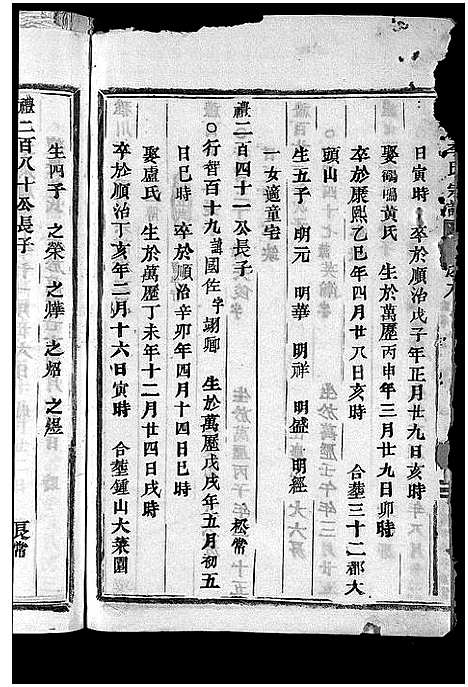 李氏宗譜
日寅時 卒於順治戊子年正月廿九日亥時
娶鵝鳴黃氏 生於萬歷丙申年三月廿九日卯時
卒於康熙乙巳年四月廿八日亥時 合塟三十二都大
頭山
生五子 明元 明華 明祥 明盛 明經
一女適童宅
禮二百四十二公長子 松常
○行智百十九諱國佐字翊卿 生於萬歷戊戌年五月初五
日巳時 卒於順治辛卯年四月十四日巳時
娶盧氏 生於萬歷丁未年十二月廿四日戌時
卒於順治丁亥年二月十六日寅時 合塟鍾山大菜園
生四子 之榮 之燁 之炤 之煜
禮二百八十公長子 長常